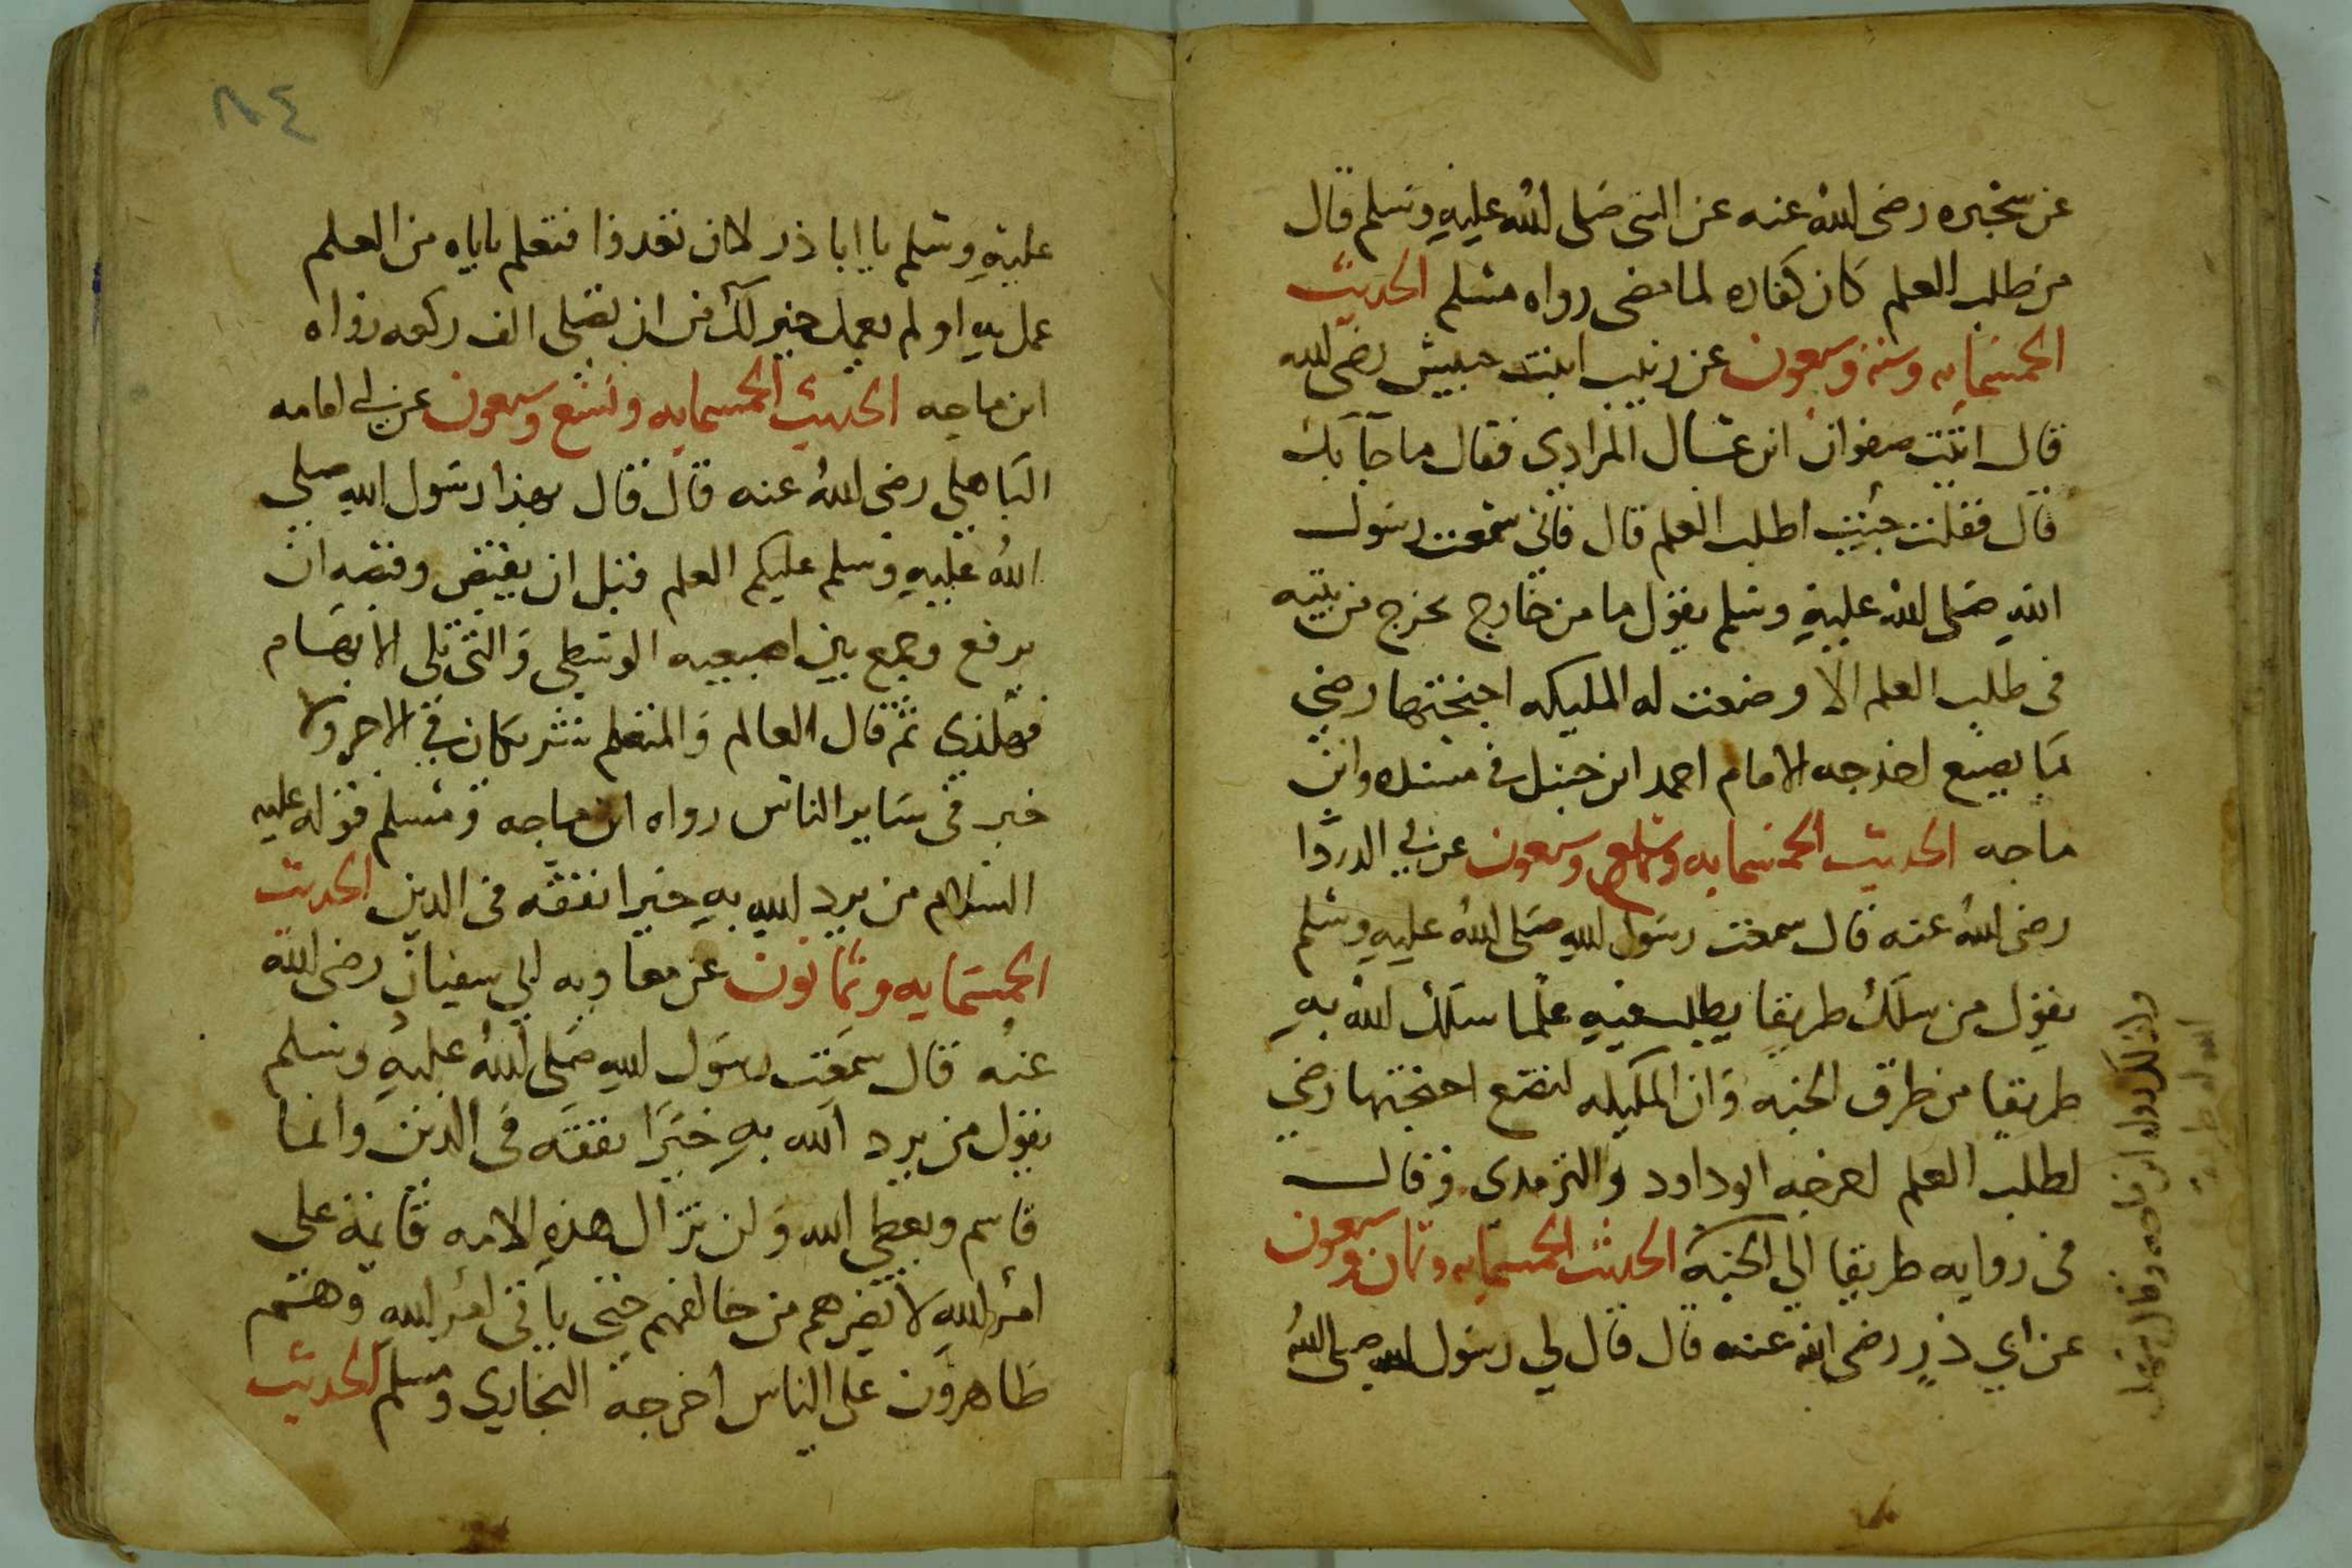 عن سخبره رضى الله عنه عن النبي صلى الله عليه وسلم قال
من طلب العلم كان كفاره لما مضى رواه مسلم الحديث
الخمسمايه وسته وسبعون عن زينب ابنت حبيش رضى الله
قال اتيت صفوان ابن عسال المرادي فقال ما جآ بك
قال فقلت جيت اطلب العلم قال فاني سمعت رسول
الله صلى الله عليه وسلم يقول ما من خارج يخرج من بيته
فى طلب العلم الا وضعت له المليكه اجنحتها رضي
بما يصنع اخرجه الامام احمد ابن حنبل في مسنده وابن
ماجه الحديث الخمسمايه وسبع وسبعون عن ابي الدردا
رضى الله عنه قال سمعت رسول الله صلى الله عليه وسلم
يقول من سلك طريقا يطلب فيه علما سلك الله به
طريقا من طرق الجنه وان المليكه لتضع اجنحتها رضي
لطلب العلم اخرجه ابو داود والترمدى وقال
فى روايه طريقا الى الجنة الحديث الخمسمايه وثمان وسبعون
عن ابي ذر رضى الله عنه قال قال لي رسول الله صلى الله
عليه وسلم يا ابا ذر لان تغدوا فتعلم باباه من العلم
عمل به او لم يعمل خير لك من ان تصلى الف ركعه رواه
ابن ماجه الحديث الخمسمايه وتسع وسبعون عن ابي امامه
الباهلي رضى الله عنه قال قال بهذا رسول الله صلى
الله عليه وسلم عليكم العلم قبل ان يقبض وقبضه ان
يرفع وجمع بين اصبعيه الوسطى والتى تلى الابهام
فهلذي ثم قال العالم والمتعلم شريكان في الاجر ولا
خير فى ساير الناس رواه ابن ماجه ومسلم قوله عليه
السلام من يرد الله به خيرا يفقه فى الدين الحديث
الخمسمايه وثمانون عن معاويه ابي سفيان رضى الله
عنه قال سمعت رسول الله صلى الله عليه وسلم
يقول من يرد الله به خيرا يفقه فى الدين وانما
قاسم ويعطى الله ولن تزال هذه الامه قايمة على
امر الله لا تضرهم من خالفهم حتى ياتى امر الله وهم
ظاهرون على الناس اخرجه البخاري ومسلم الحديث
٨٤